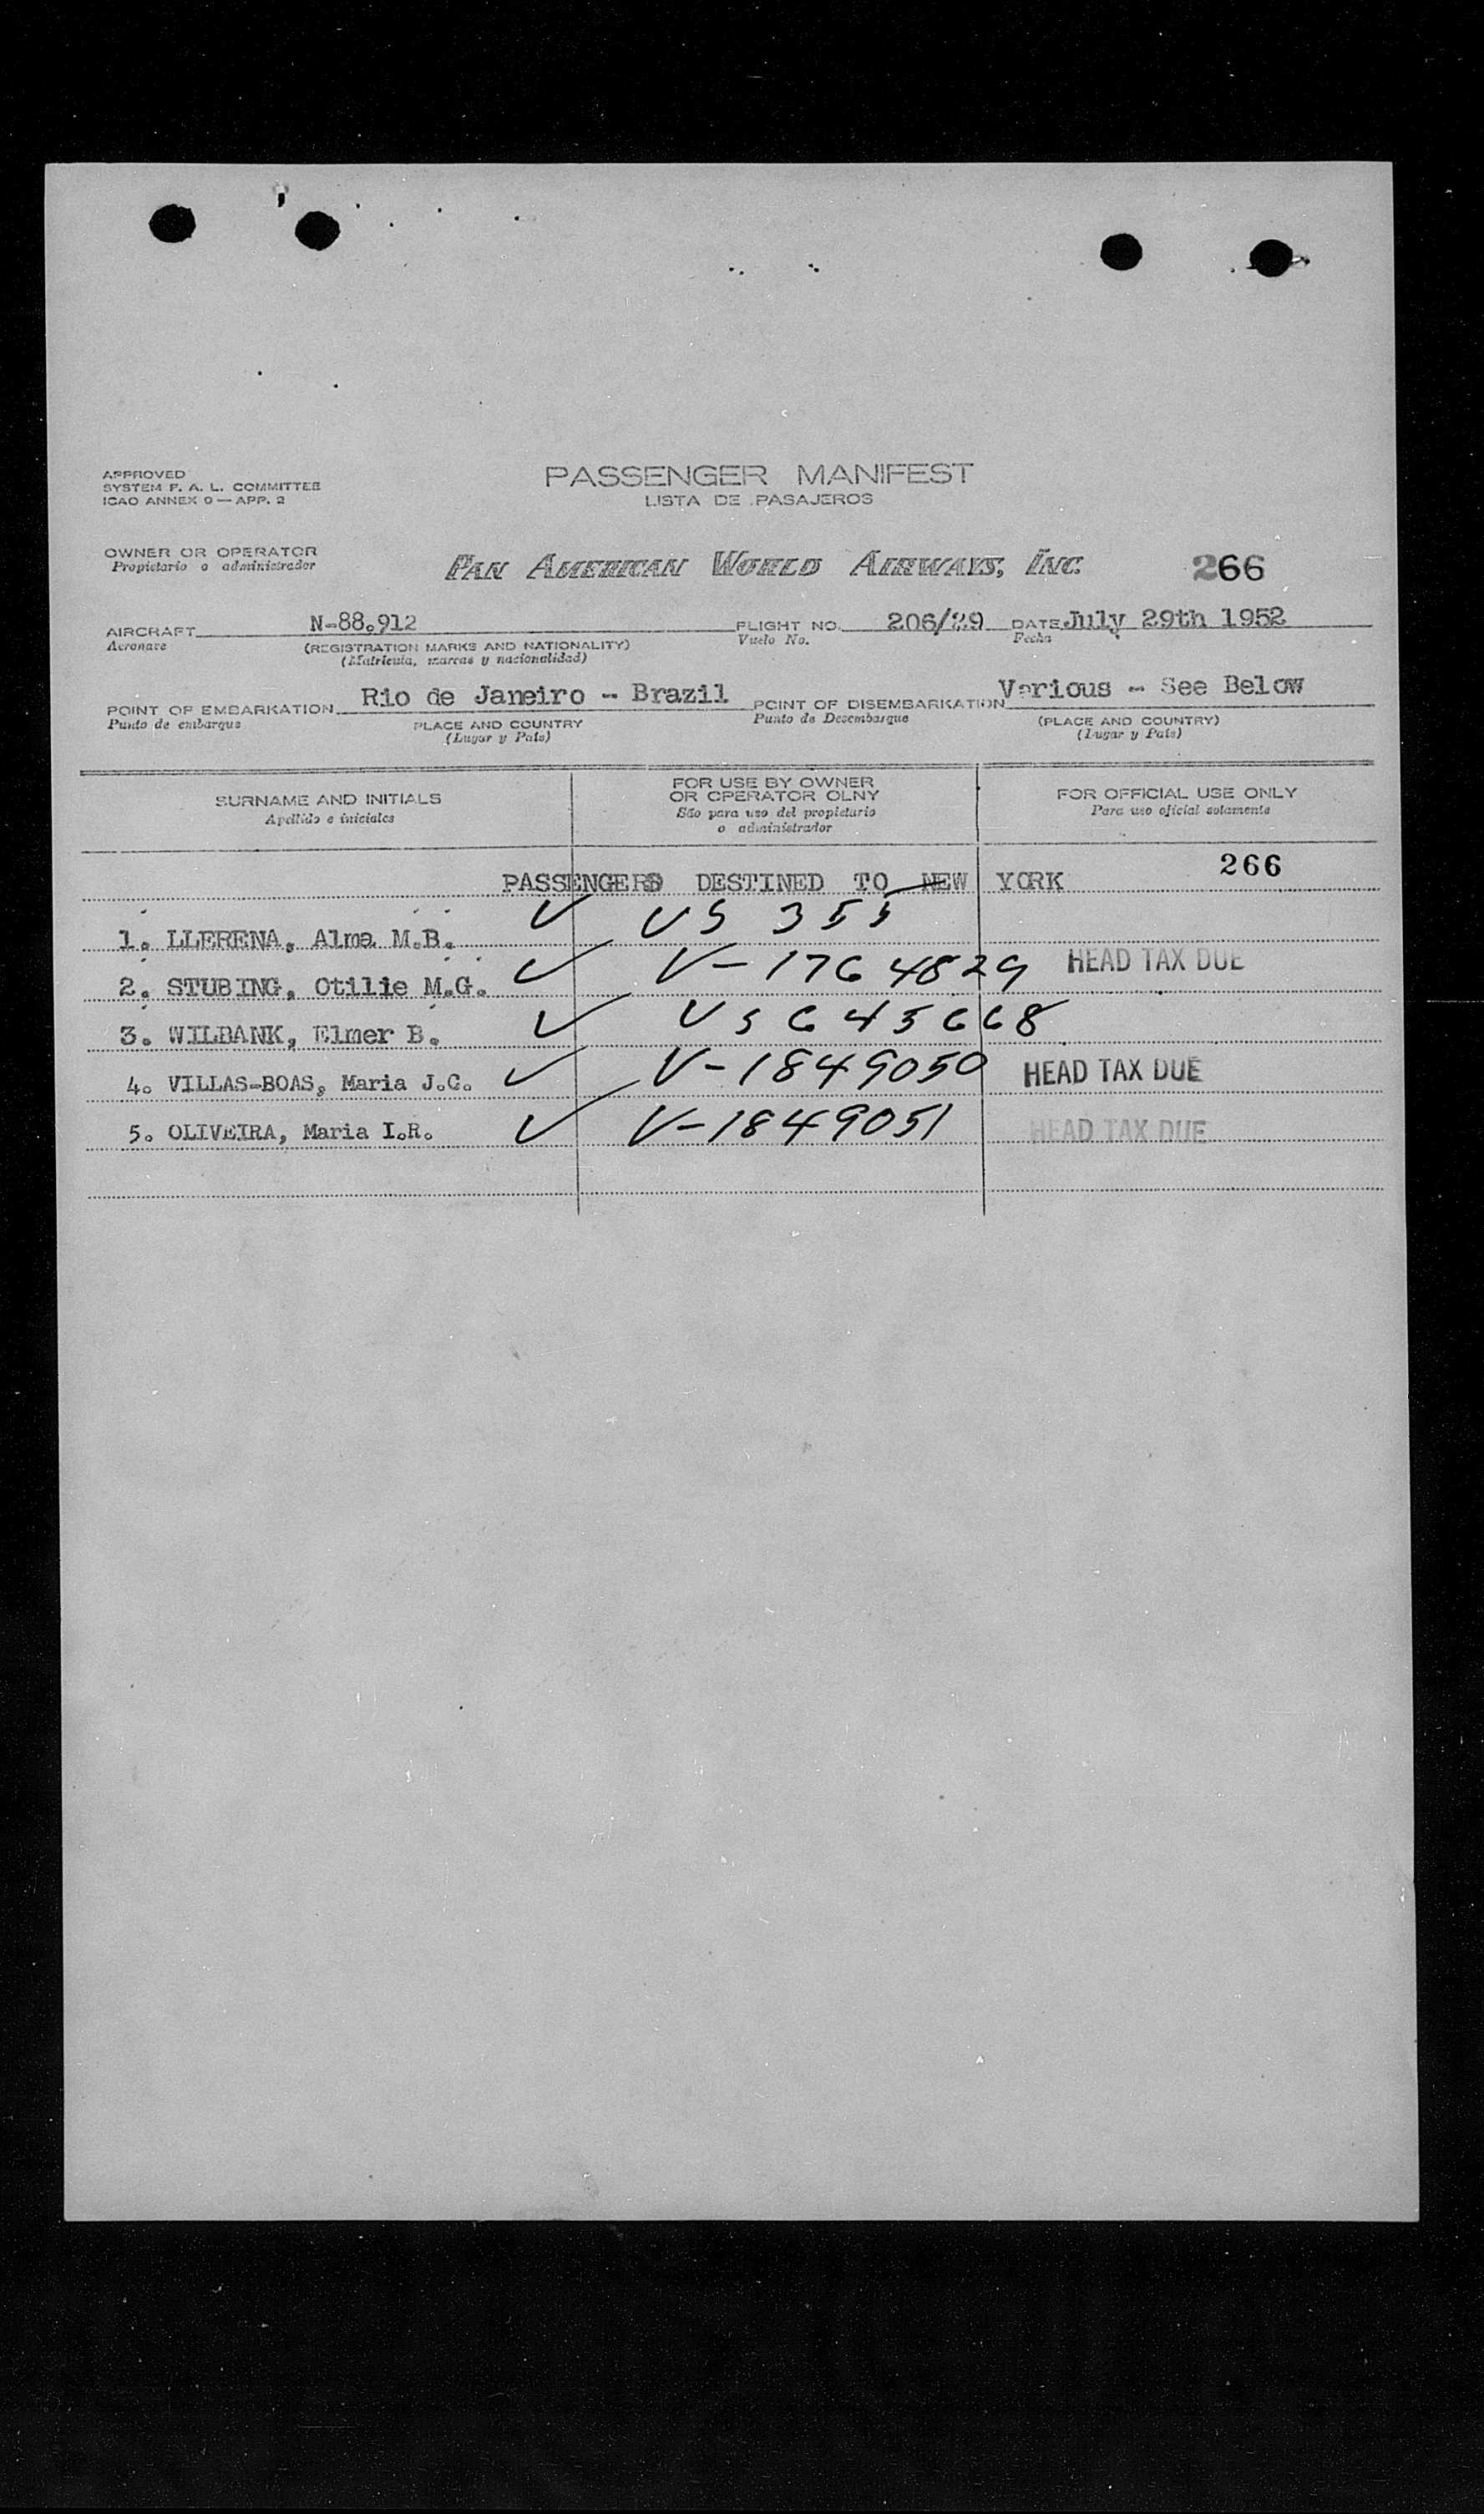 APPROVED
SYSTEM F. A. L. COMMITTEE
ICAO ANNEX 9 — APP. 2
PASSENGER MANIFEST
LISTA DE PASAJEROS
OWNER OR OPERATOR
Propietario o administrador
PAN AMERICAN WORLD AIRWAYS, INC.
266
AIRCRAFT N-88.912 FLIGHT NO. 206/29 DATE July 29th 1952
Aeronave (REGISTRATION MARKS AND NATIONALITY) Vuelo No. Fecha
(Matricula, marcas y nacionalidad)
POINT OF EMBARKATION Rio de Janeiro - Brazil POINT OF DISEMBARKATION Various - See Below
Punto de embarque PLACE AND COUNTRY Punto de Desembarque (PLACE AND COUNTRY)
(Lugar y País) (Lugar y País)
SURNAME AND INITIALS
Apellido e iniciales
FOR USE BY OWNER
OR OPERATOR OLNY
São para uso del propietario
o administrador
FOR OFFICIAL USE ONLY
Para uso oficial solamente
PASSENGERS DESTINED TO NEW YORK 266
1. LLERENA, Alma M.B. ✓ US 355
2. STUBING, Otilie M.G. ✓ V-1764829 HEAD TAX DUE
3. WILBANK, Elmer B. ✓ US 645668
4. VILLAS-BOAS, Maria J.C. ✓ V-1849050 HEAD TAX DUE
5. OLIVEIRA, Maria I.R. ✓ V-1849051 HEAD TAX DUE